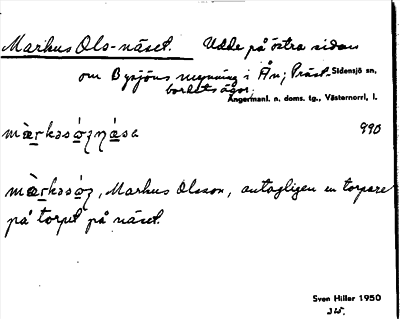 Markus Ols-näset. Udde på östra sidan
om Bysjöns mynning i Ån; Präst-
bordets ägor.
Sidensjö sn,
Ångermanl. n. doms. tg., Västernorrl. l.
990
Markus Olsson, antagligen en torpare
på torpet på näset.
Sven Hiller 1950